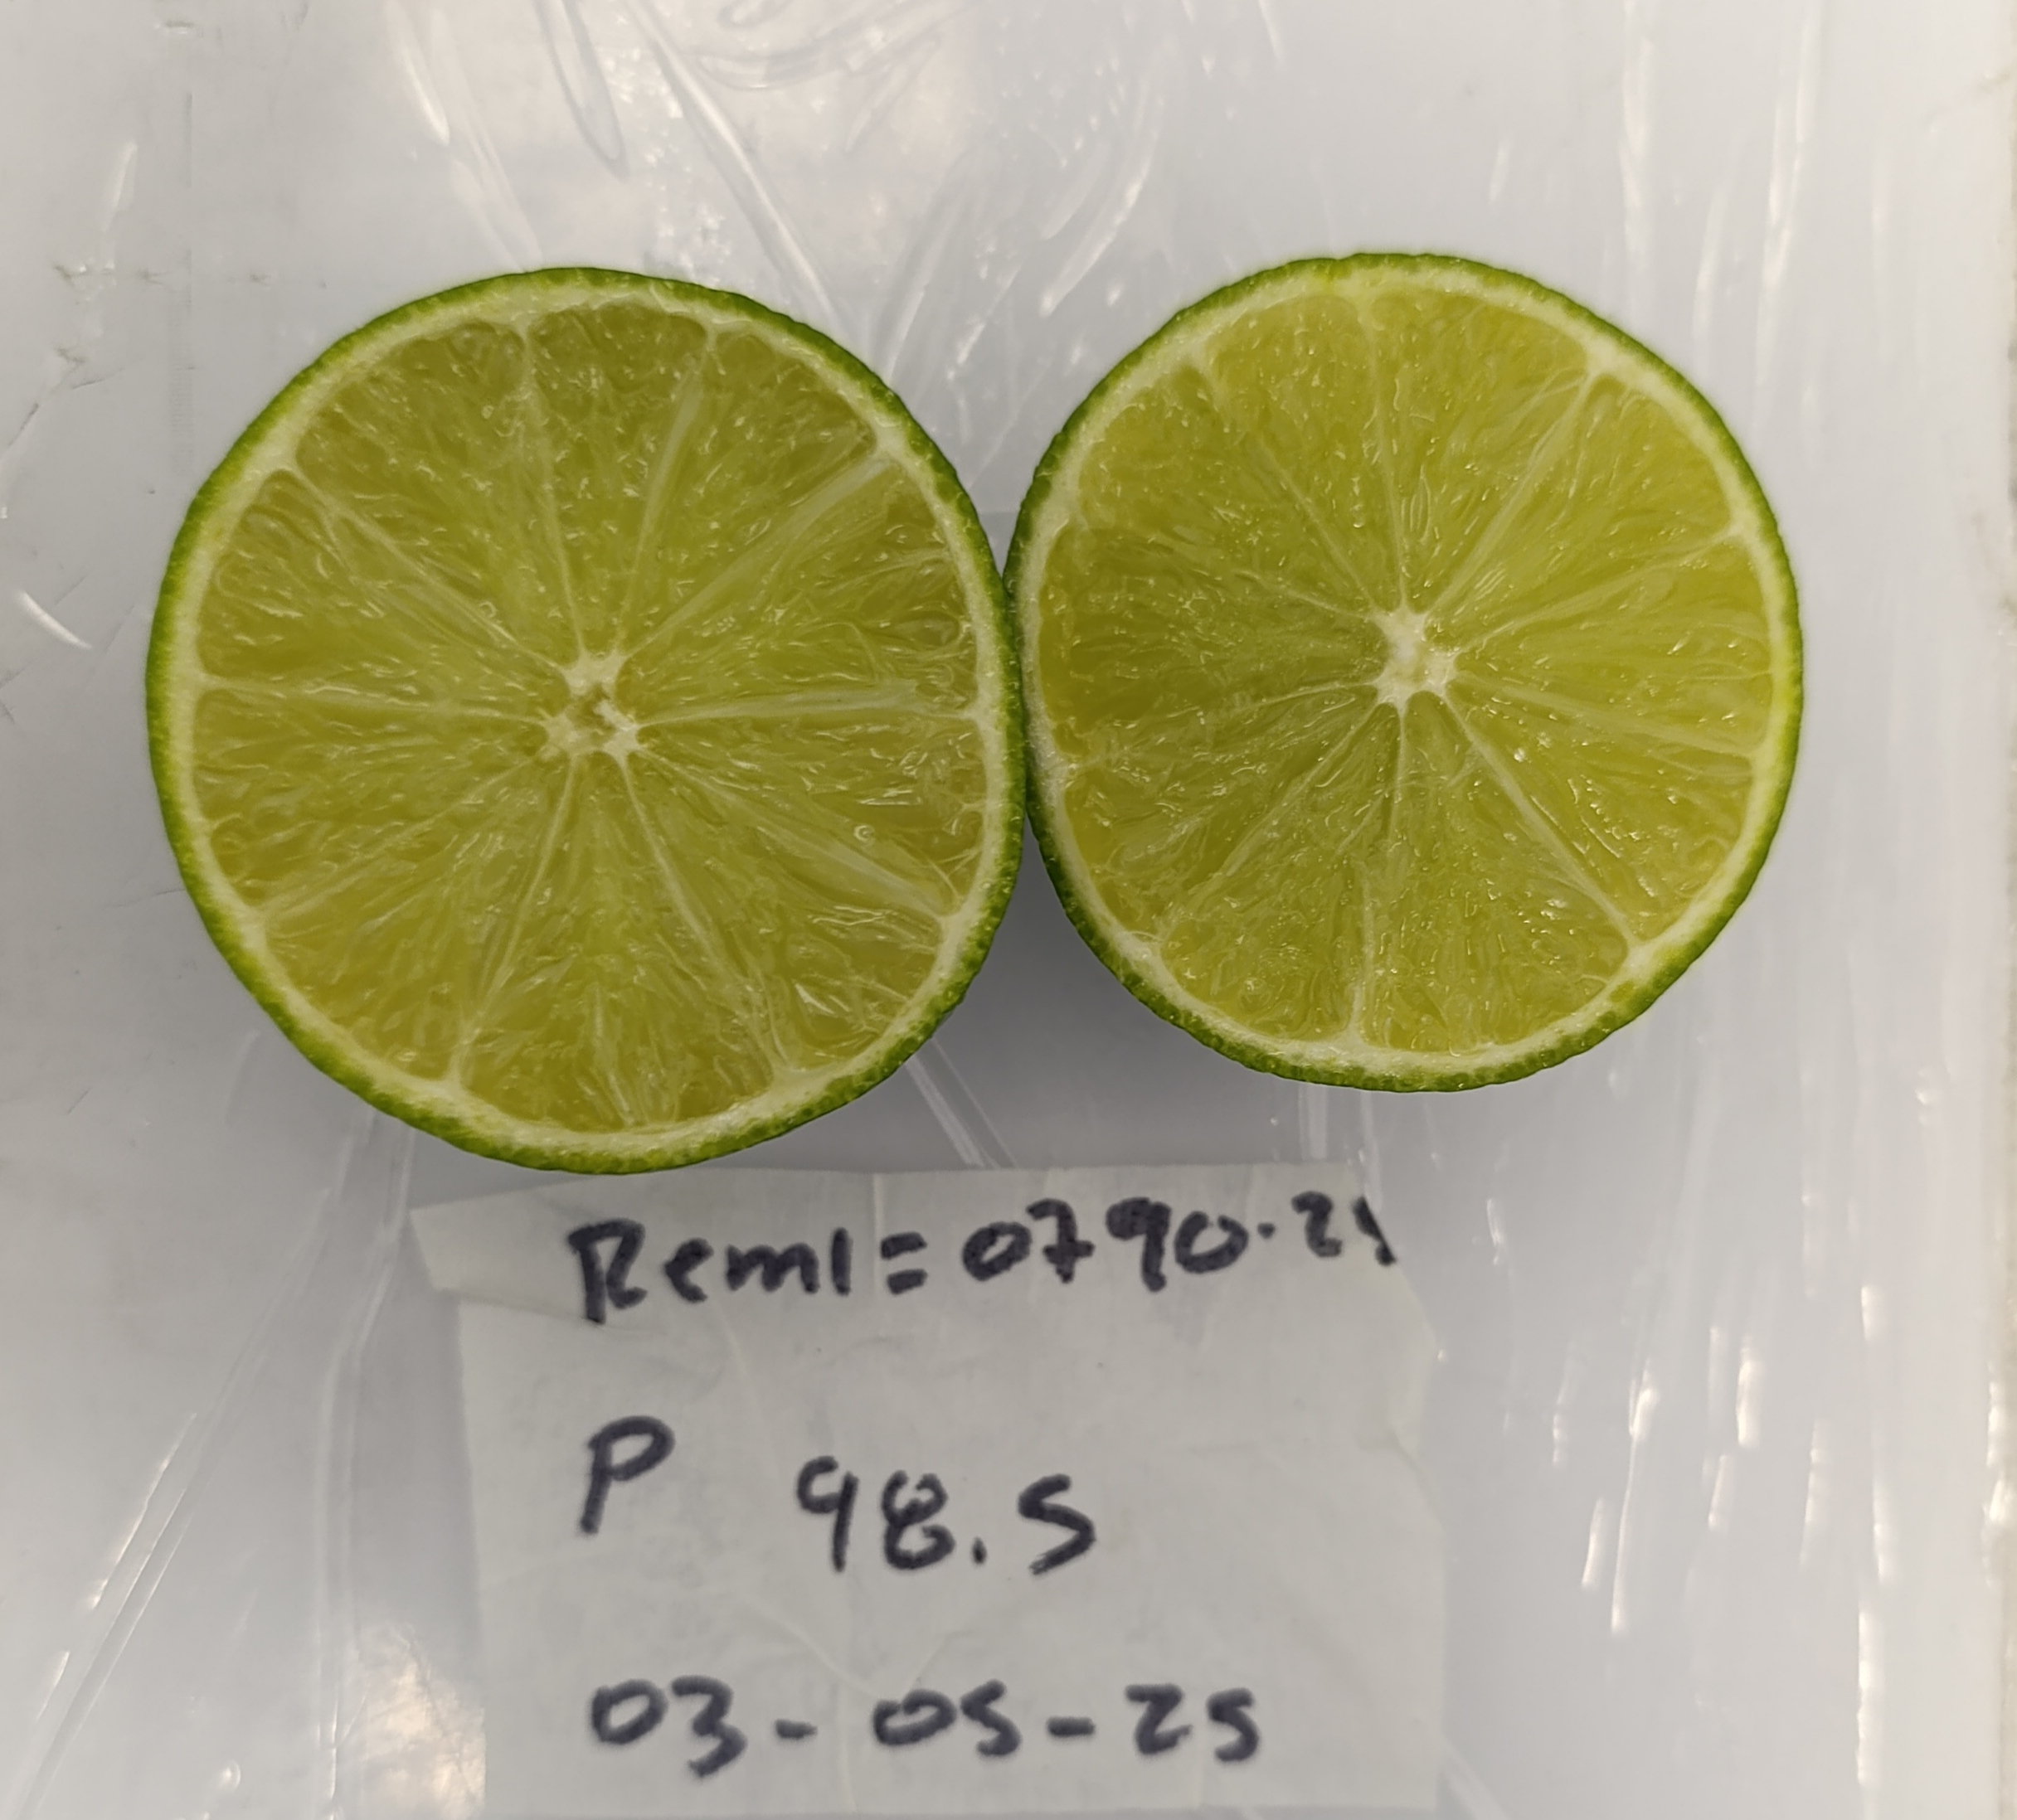 Reml=0790.21
P 98.5
03-05-25